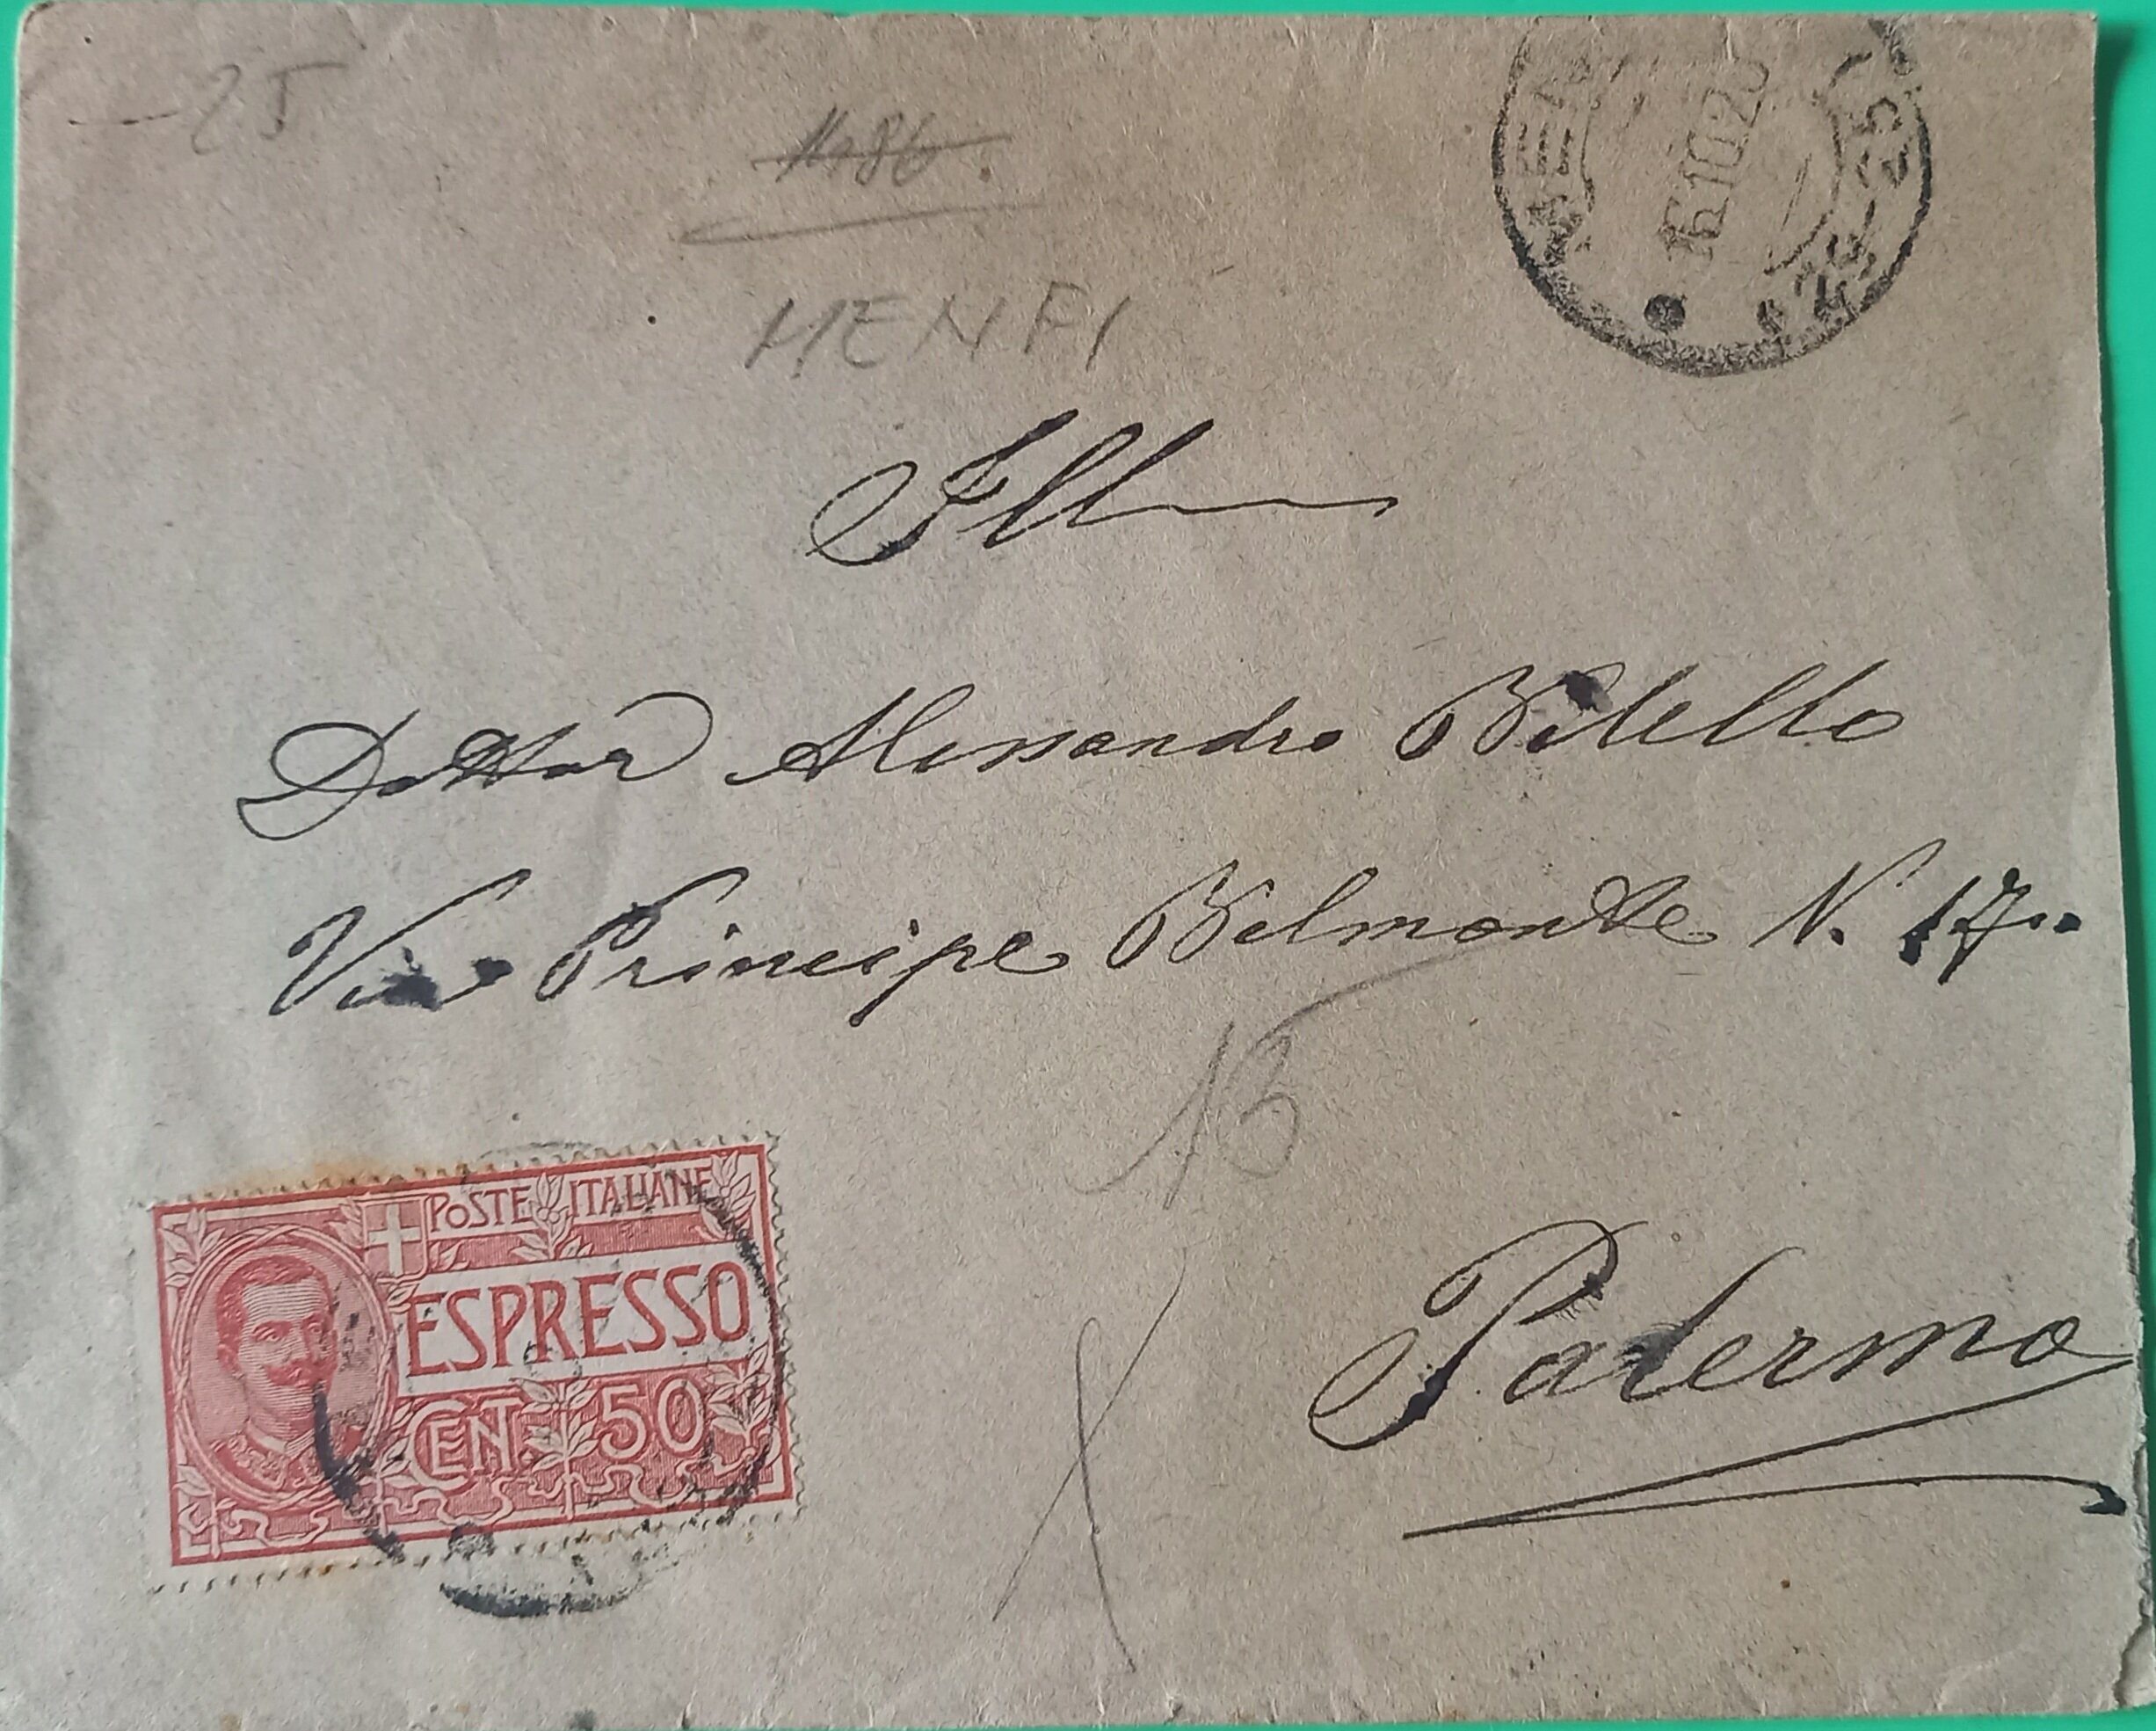 25
1486
MENFI
MEN
15.10.20
Ill
Dottor Alessandro Bilello
Via Principe Belmonte N. 17
13
Palermo
POSTE ITALIANE
ESPRESSO
CENT. 50